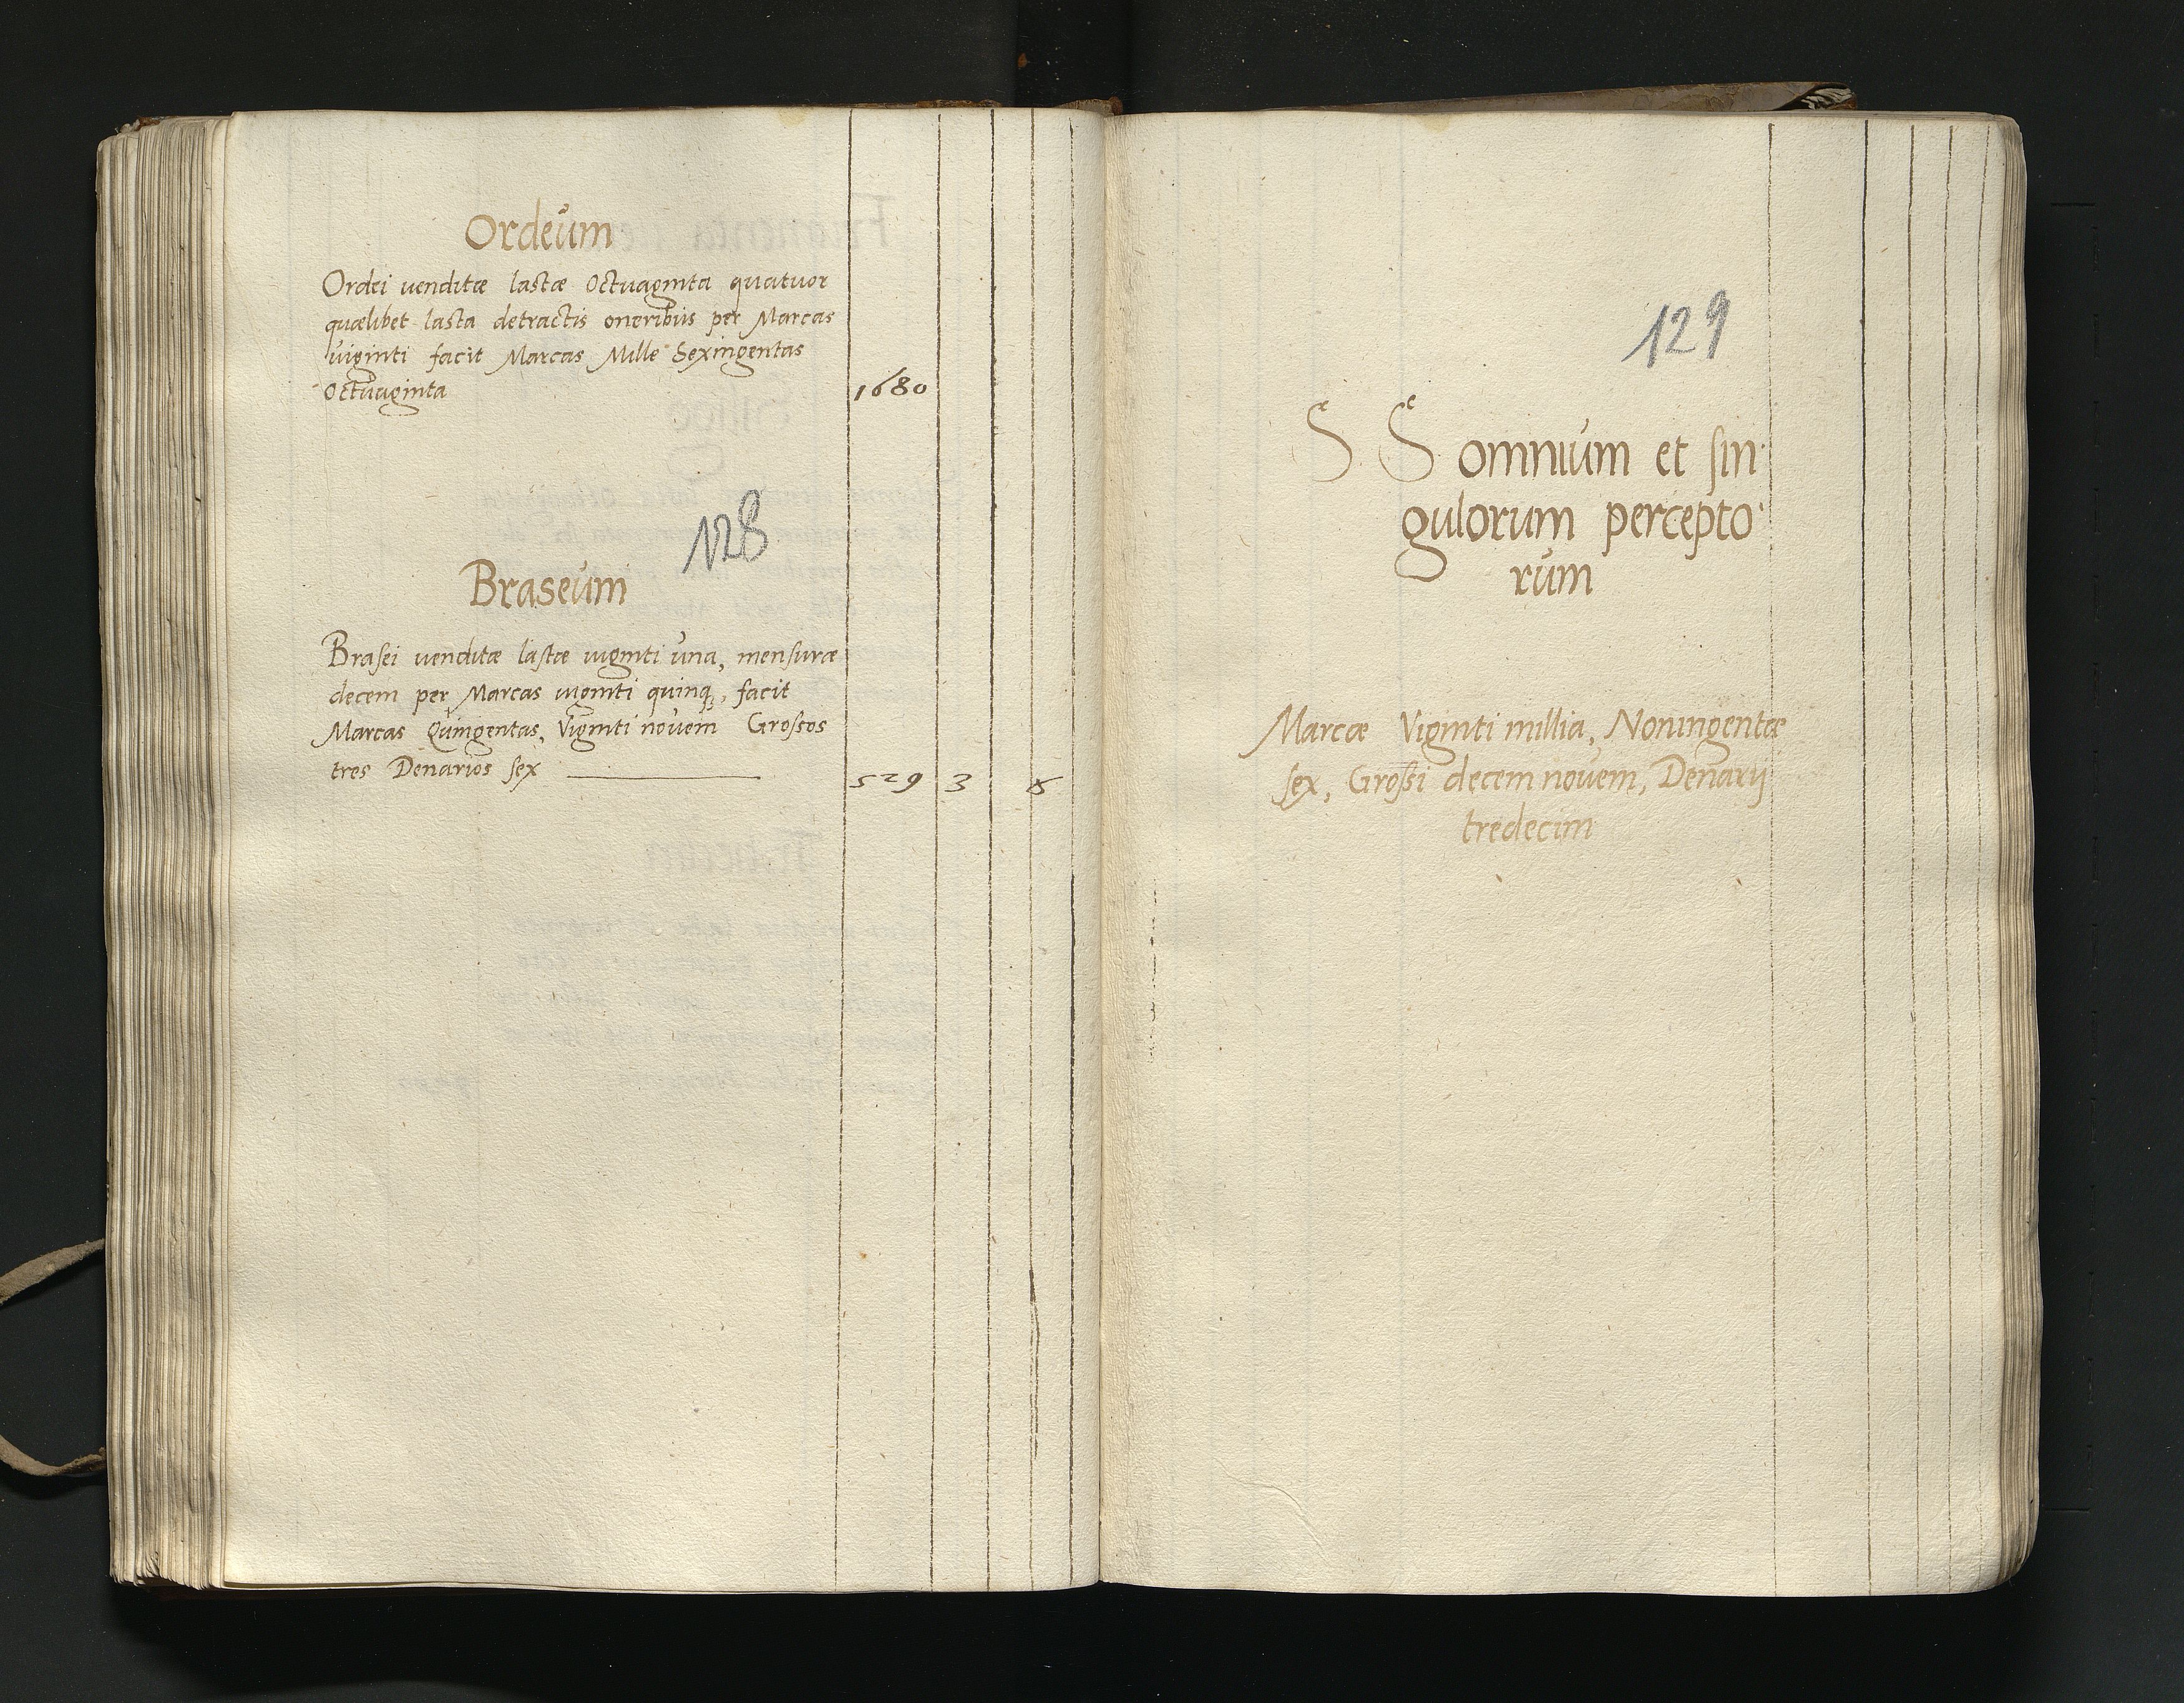 Ordeum
Ordei venditæ lastæ Octuaginta quatuor
quælibet lasta detractis oneribus per Marcas
viginti facit Marcas Mille Sexingentas
Octuaginta 1680
128
Braseum
Brasei venditæ lastæ viginti una, mensuræ
decem per Marcas viginti quinq, facit
Marcas Quingentas, Viginti novem Grossos
tres Denarios sex 529 3 6
129
Sᵉ Sᵉ omnium et sin
gulorum percepto
rum
Marcæ Viginti millia, Noningentæ
sex, Grossi decem novem, Denarij
tredecim